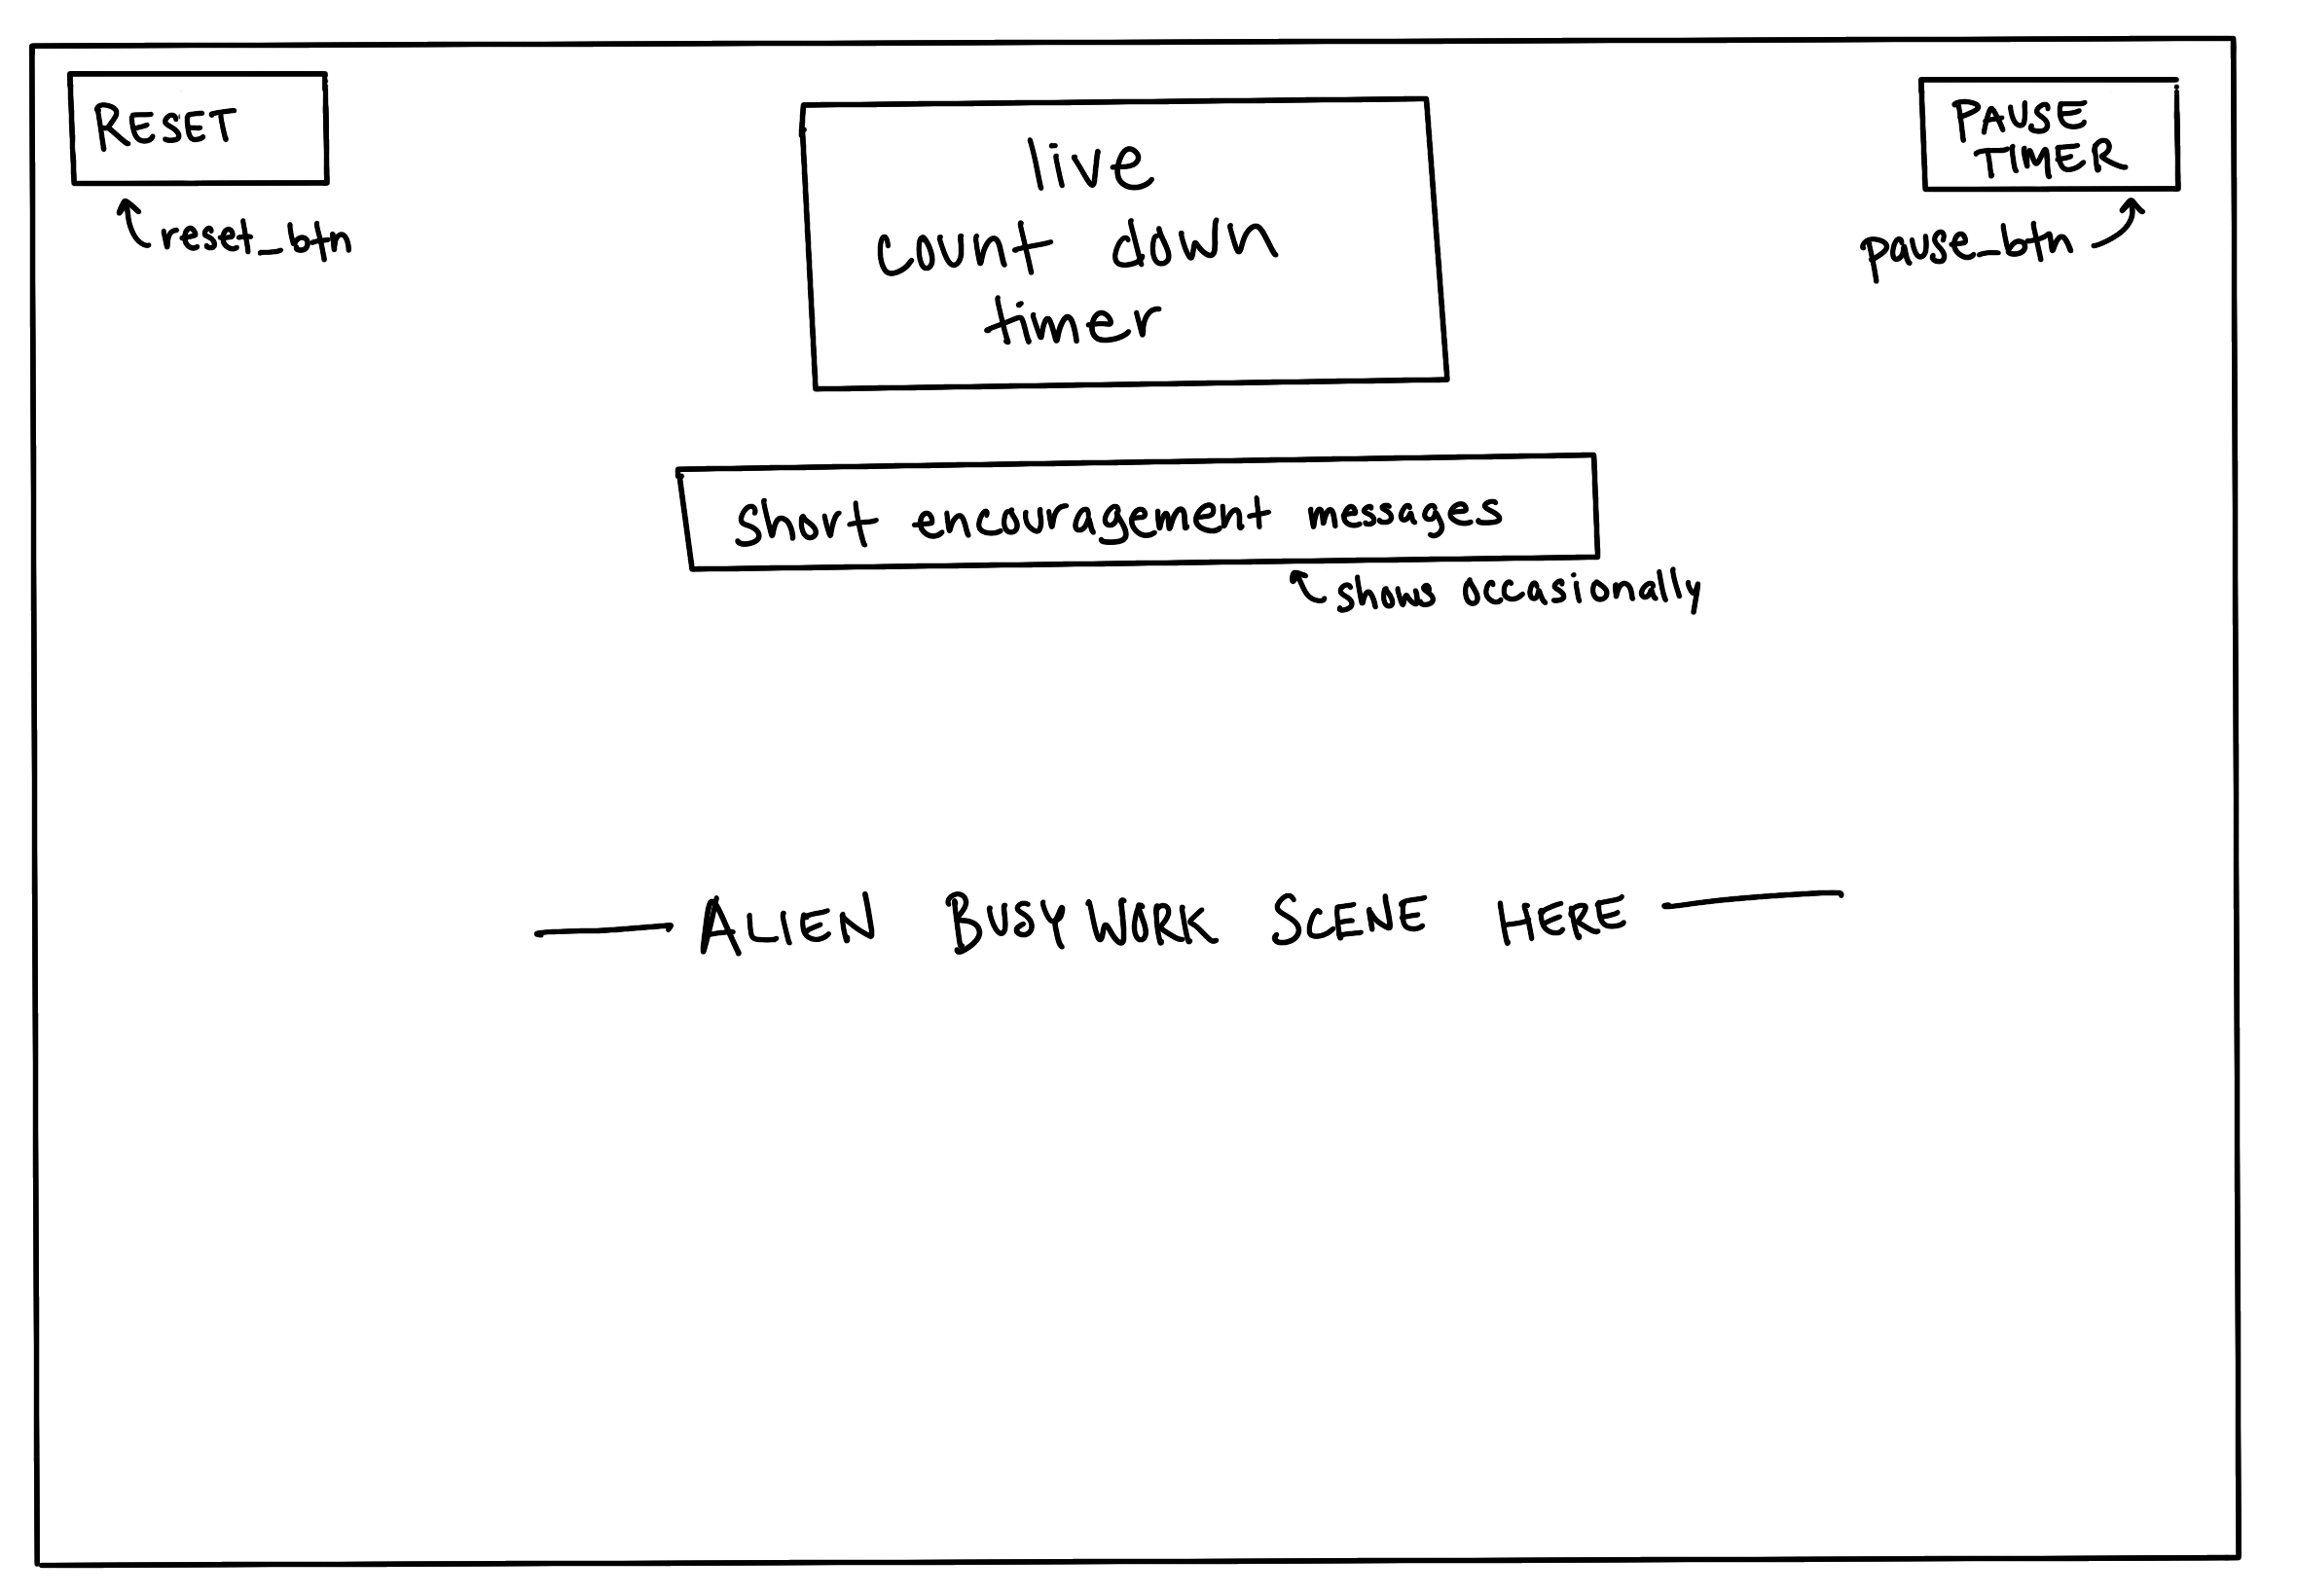 RESET
reset_btn
live
count down
timer
PAUSE
TIMER
pause_btn
short encouragement messages
shows occasionally
ALIEN BUSYWORK SCENE HERE